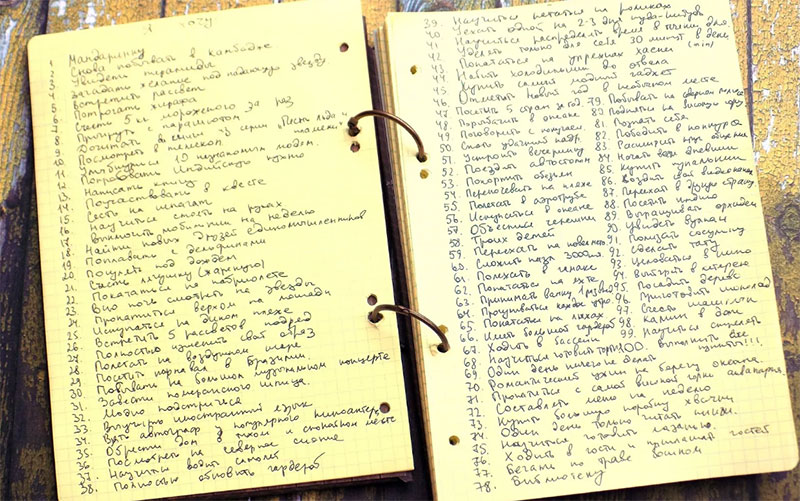 Я хочу
1 Мандаринку
2 Снова побывать в Камбодже
3 Увидеть пирамиды
4 Загадать желание под падающую звезду.
5 Встретить рассвет
6 Потрогать жирафа
7 Съесть 5 кг мороженого за раз
8 Прыгнуть с парашютом
9 Дочитать серии "Песнь льда и пламени"
10 Посмотреть в телескоп
11. Улыбнуться 10 людям.
12. Попробовать Индийскую кухню
13. Написать книгу
14. Поучаствовать в квесте
15. Сесть на шпагат
16. Научиться стоять на руках
17. Выключить мобильник на неделю
18. Найти новых друзей единомышленников
19. Поплавать с дельфинами
20. Погулять под дождем
21. Съесть лягушку (жареную)
22. Покататься на кабриолете
23. Всю ночь смотреть на звезды
24. Прокатиться верхом на лошади
25. Искупаться на диком пляже
26. Встретить 5 рассветов подряд
27. Полностью изменить свой образ
28. Полетать на воздушном шаре
29. Посетить карнавал в Бразилии.
30. Побывать на большом музыкальном концерте
31. Завести померанского шпица.
32. Модно подстричься
33. Выучить иностранный язык
34. Взять автограф у популярного киноактера
35. Обрести дом в тихом и спокойном месте
36. Посмотреть на северное сияние
37. Научиться водить самолет
38. Полностью обновить гардероб
39. Научиться кататься на роликах
40 Уехать одной на 2-3 дня куда-нибудь
41 Научиться распределять время в течении дня
42 Уделять только для себя 30 минут в день
43 Покататься на упряжках хаски (min)
44. Набить холодильник до отвала
45. Купить самый модный гаджет
46. Отметить новый год в необычном месте
47. Посетить 5 стран за год. 79. Побывать на
48. Порыбачить в океане 80 Подняться на высокую гору
49. Поговорить с попугаем. 81. Познать себя
50 Снять удачный кадр. 82. Победить в конкурсе
51. Устроить вечеринку 83. Расширить круг общения
52. Поездить автостопом 84. Начать вести дневник
53. Покормить обезьян 85. Купить купальник
54. Переночевать на пляже 86. Создать свой видеоканал
55. Полетать в аэротрубе 87. Переехать в другую страну
56. Искупаться в океане 88. Посетить индию
57. Объесться черешни 89. Выращивать орхидеи
58. Троих детей 90. Увидеть вулкан
59. Переехать на 91. Полизать сосульку
60. Сложить пазл 3000 эл. 92. Сделать тату
61. Поплевать в 93. Целоваться в кино
62. Покататься на яхте 94. Выиграть в лотерею
63. Принимать ванну 95. Посадить дерево
64. Прогуливаться каждое утро. 96. Приготовить шоколад
65. Покататься на лыжах 97. Съесть шашлык
66. Иметь большой гардероб 98. Камин в дом
67. Ходить в бассейн 99. Научиться стрелять
68. Научиться готовить торт 100. Выполнить все пункты!!!
69. Один день ничего не делать
70. Романтический ужин на берегу океана.
71. Прокатиться с самой высокой горки аквапарка.
72. Составлять меню на неделю
73. Купить большую коробку
74. Один день только читать книги.
75. Научиться готовить лазанью.
76. Ходить в гости и приглашать гостей
77. Бегать по траве босиком
78. Библиотеку